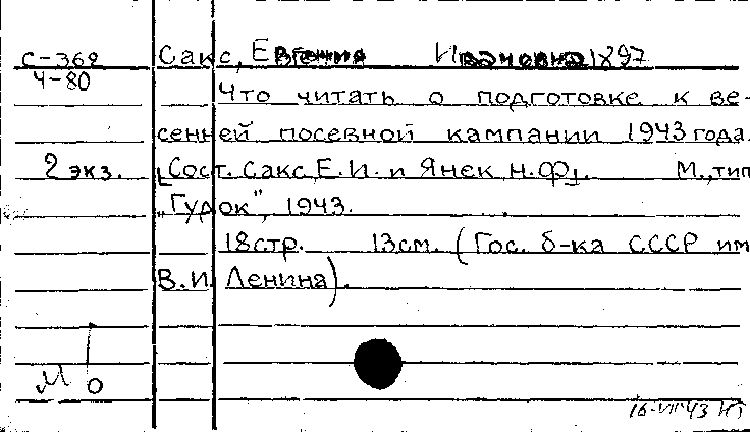 С-369 Сакс, Евгения Ивановна 1897
Ч-80
Что читать о подготовке к ве-
сенней посевной кампании 1943 года.
2 экз. [Сост. Сакс, Е.И. и Янек Н.Ф]. М., тип
„Гудок“, 1943.
18 стр. 13 см. (Гос. б-ка СССР им
В.И. Ленина).
М О
16-VII 43